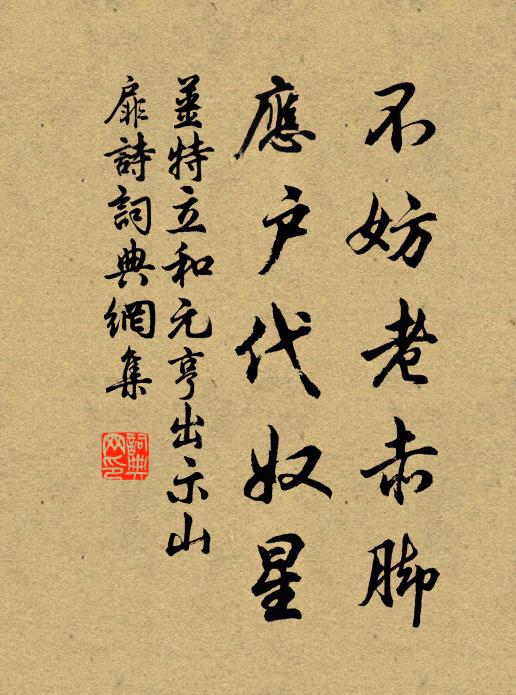 不妨老赤脚
應户代奴星
姜特立和元亨出示山
扉詩詞典網集
詞典
网印